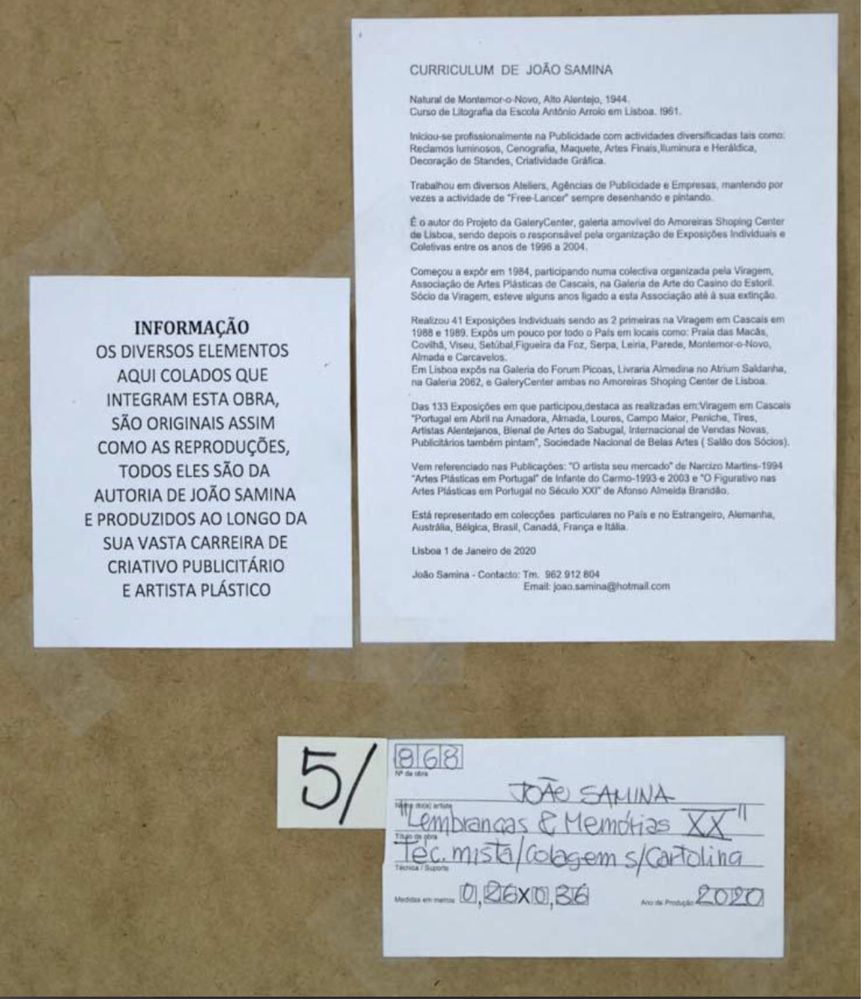 CURRICULUM DE JOÃO SAMINA
Natural de Montemor-o-Novo, Alto Alentejo, 1944.
Curso de Litografia da Escola António Arroio em Lisboa. I961.
Iniciou-se profissionalmente na Publicidade com actividades diversificadas tais como:
Reclamos luminosos, Cenografia, Maquete, Artes Finais,Iluminura e Heráldica,
Decoração de Standes, Criatividade Gráfica.
Trabalhou em diversos Ateliers, Agências de Publicidade e Empresas, mantendo por
vezes a actividade de "Free-Lancer" sempre desenhando e pintando.
É o autor do Projeto da GaleryCenter, galeria amovível do Amoreiras Shoping Center
de Lisboa, sendo depois o responsável pela organização de Exposições Individuais e
Coletivas entre os anos de 1996 a 2004.
Começou a expôr em 1984, participando numa colectiva organizada pela Viragem,
Associação de Artes Plásticas de Cascais, na Galeria de Arte do Casino do Estoril.
Sócio da Viragem, esteve alguns anos ligado a esta Associação até á sua extinção.
Realizou 41 Exposições Individuais sendo as 2 primeiras na Viragem em Cascais em
1988 e 1989. Expôs um pouco por todo o País em locais como: Praia das Macãs,
Covilhã, Viseu, Setúbal,Figueira da Foz, Serpa, Leiria, Parede, Montemor-o-Novo,
Almada e Carcavelos.
Em Lisboa expôs na Galeria do Forum Picoas, Livraria Almedina no Atrium Saldanha,
na Galeria 2062, e GaleryCenter ambas no Amoreiras Shoping Center de Lisboa.
Das 133 Exposições em que participou,destaca as realizadas em:Viragem em Cascais
"Portugal em Abril na Amadora, Almada, Loures, Campo Maior, Peniche, Tires,
Artistas Alentejanos, Bienal de Artes do Sabugal, Internacional de Vendas Novas,
Publicitários também pintam", Sociedade Nacional de Belas Artes ( Salão dos Sócios).
Vem referenciado nas Publicações: "O artista seu mercado" de Narcizo Martins-1994
"Artes Plásticas em Portugal" de Infante do Carmo-1993 e 2003 e "O Figurativo nas
Artes Plásticas em Portugal no Século XXI" de Afonso Almeida Brandão.
Está representado em colecções particulares no País e no Estrangeiro, Alemanha,
Austrália, Bélgica, Brasil, Canadá, França e Itália.
Lisboa 1 de Janeiro de 2020
João Samina - Contacto: Tm. 962 912 804
Email: joao.samina@hotmail.com
INFORMAÇÃO
OS DIVERSOS ELEMENTOS
AQUI COLADOS QUE
INTEGRAM ESTA OBRA,
SÃO ORIGINAIS ASSIM
COMO AS REPRODUÇÕES,
TODOS ELES SÃO DA
AUTORIA DE JOÃO SAMINA
E PRODUZIDOS AO LONGO DA
SUA VASTA CARREIRA DE
CRIATIVO PUBLICITÁRIO
E ARTISTA PLÁSTICO
5/
868
Nº da obra
JOÃO SAMINA
Nome do(a) artista
"Lembranças & Memórias XX"
Título da obra
Tec. mista/colagem s/Cartolina
Técnica / Suporte
Medidas em metros 0,26X0,36 Ano de Produção 2020